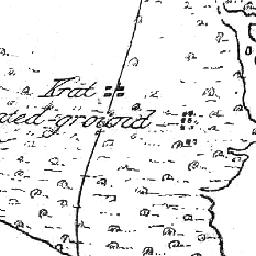 Krat
ated ground